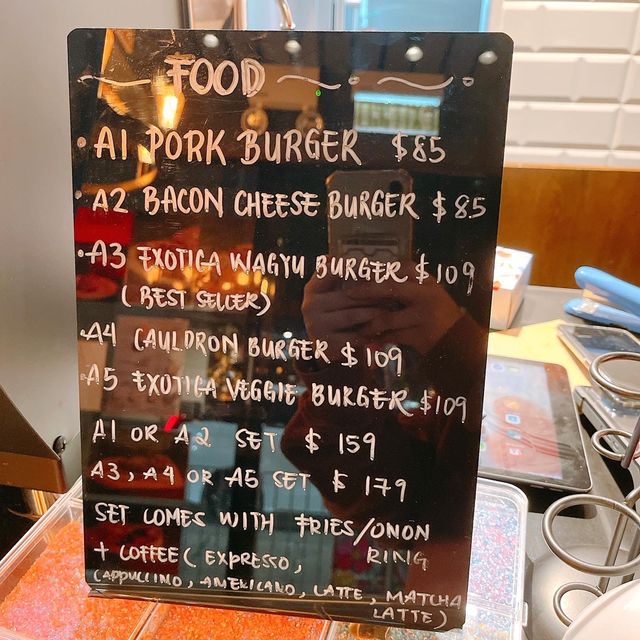 FOOD
A1 PORK BURGER $85
A2 BACON CHEESE BURGER $85
A3 EXOTICA WAGYU BURGER $109
(BEST SELLER)
A4 CAULDRON BURGER $109
A5 EXOTICA VEGGIE BURGER $109
A1 OR A2 SET $ 159
A3, A4 OR A5 SET $ 179
SET COMES WITH FRIES/ONON
RING
+ COFFEE ( EXPRESSO,
CAPPUCCINO, AMERICANO, LATTE, MATCHA
LATTE)